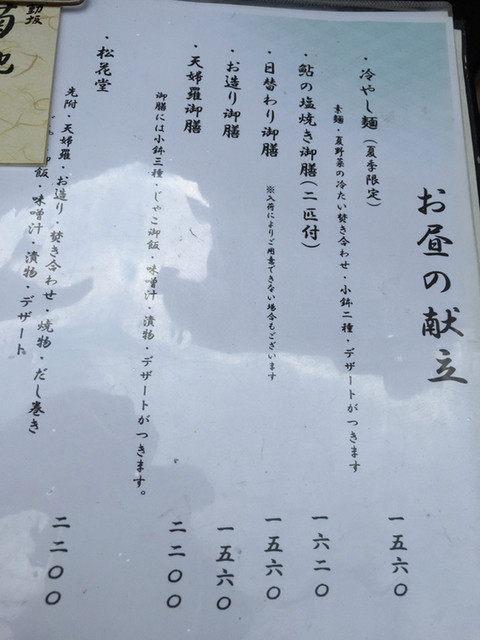 お昼の献立
・冷やし麺(夏季限定) 一五六〇
素麺・夏野菜の冷たい焚き合わせ・小鉢二種・デザートがつきます
・鮎の塩焼き御膳(二匹付) 一六二〇
※入荷によりご用意できない場合もございます
・日替わり御膳 一五六〇
・お造り御膳 一五六〇
・天婦羅御膳 二二〇〇
御膳には小鉢三種・じゃこ御飯・味噌汁・漬物・デザートがつきます。
・松花堂 二二〇〇
先附・天婦羅・お造り・焚き合わせ・焼物・だし巻き
御飯・味噌汁・漬物・デザート